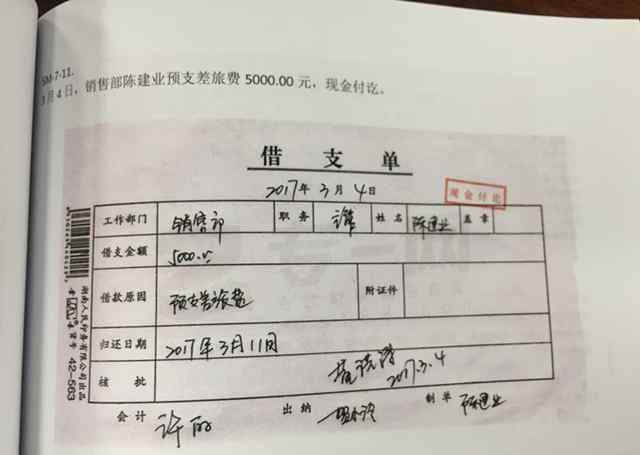 SM-7-11.
3月4日，销售部陈建业预支差旅费 5000.00 元，现金付讫。
借 支 单
2017年3月4日
现金付讫
工作部门 销售部 职务 姓名 陈建业 盖章
借支金额 5000.00
借款原因 预支差旅费 附证件
归还日期 2017年3月11日
核 批 2017.3.4
会计 许丽 出纳 制单 陈建业
湖南人民印务有限公司出品
42-563